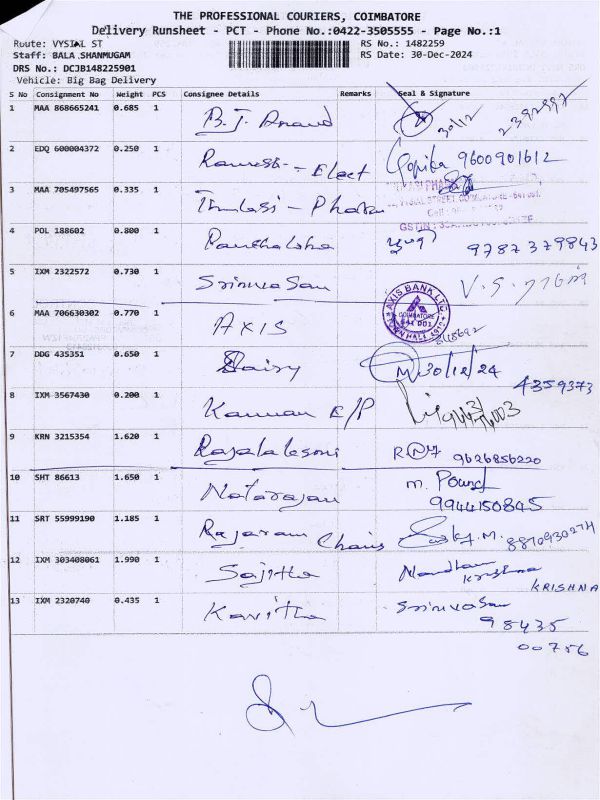 THE PROFESSIONAL COURIERS, COIMBATORE
Delivery Runsheet - PCT - Phone No.:0422-3505555 - Page No.:1
Route: VYSIAL ST
RS No.: 1482259
Staff: BALA SHANMUGAM
RS Date: 30-Dec-2024
DRS No.: DCJB148225901
Vehicle: Big Bag Delivery
S No Consignment No Weight PCS Consignee Details Remarks Seal & Signature
1 MAA 868665241 0.685 1 B.J. Anand 30/12
2 EDQ 600004372 0.250 1 Ramesh - Elect Gopika 9600901612
3 MAA 705497565 0.335 1 Thulasi - Pharma
4 POL 188602 0.800 1 9787379843
5 IXM 2322572 0.730 1 Srinivasan
6 MAA 706630302 0.770 1 AXIS AXIS BANK LTD. COIMBATORE 641 001 TOWN HALL
7 DDG 435351 0.650 1 Daisy 30/12/24
4359373
8 IXM 3567430 0.200 1 Kannan E/P
9 KRN 3215354 1.620 1 9626856220
10 SHT 86613 1.650 1 Natarajan
9944150845
11 SRT 55999190 1.185 1 Rajaram Chairs
12 IXM 303408061 1.990 1 Sajitha Nandha Krishna
KRISHNA
13 IXM 2320740 0.435 1 Kavitha Srinivasan
98435
00756